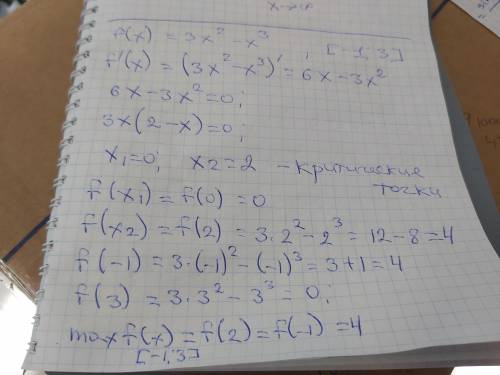 x→∞
f(x) = 3x² - x³ ; [-1; 3]
f'(x) = (3x² - x³)' = 6x - 3x²
6x - 3x² = 0;
3x(2 - x) = 0;
x₁ = 0; x₂ = 2 - критические
точки
f(x₁) = f(0) = 0
f(x₂) = f(2) = 3·2² - 2³ = 12 - 8 = 4
f(-1) = 3·(-1)² - (-1)³ = 3 + 1 = 4
f(3) = 3·3² - 3³ = 0;
max f(x) = f(2) = f(-1) = 4
[-1; 3]